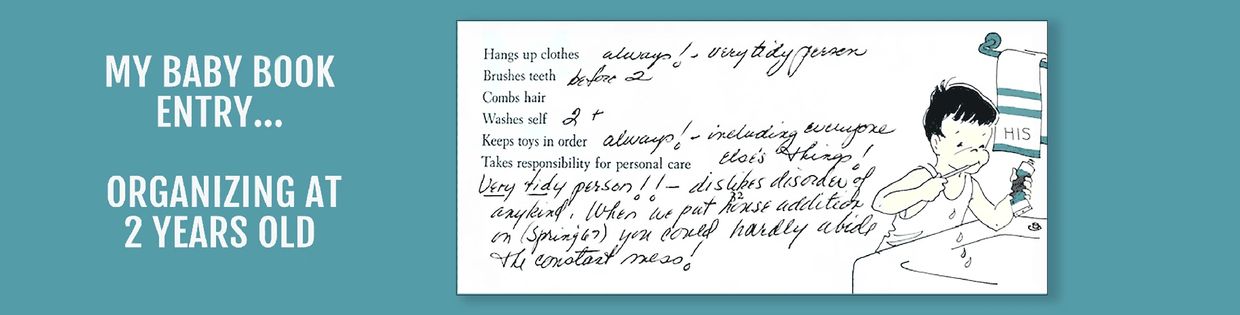 MY BABY BOOK
ENTRY...
ORGANIZING AT
2 YEARS OLD
Hangs up clothes always! - very tidy person
Brushes teeth before 2
Combs hair
Washes self 2 +
Keeps toys in order always! - including everyone
else's things!
Takes responsibility for personal care
Very tidy person!! - dislikes disorder of
anykind. When we put house addition
on (Spring 67) you could hardly abide
the constant mess!
HIS